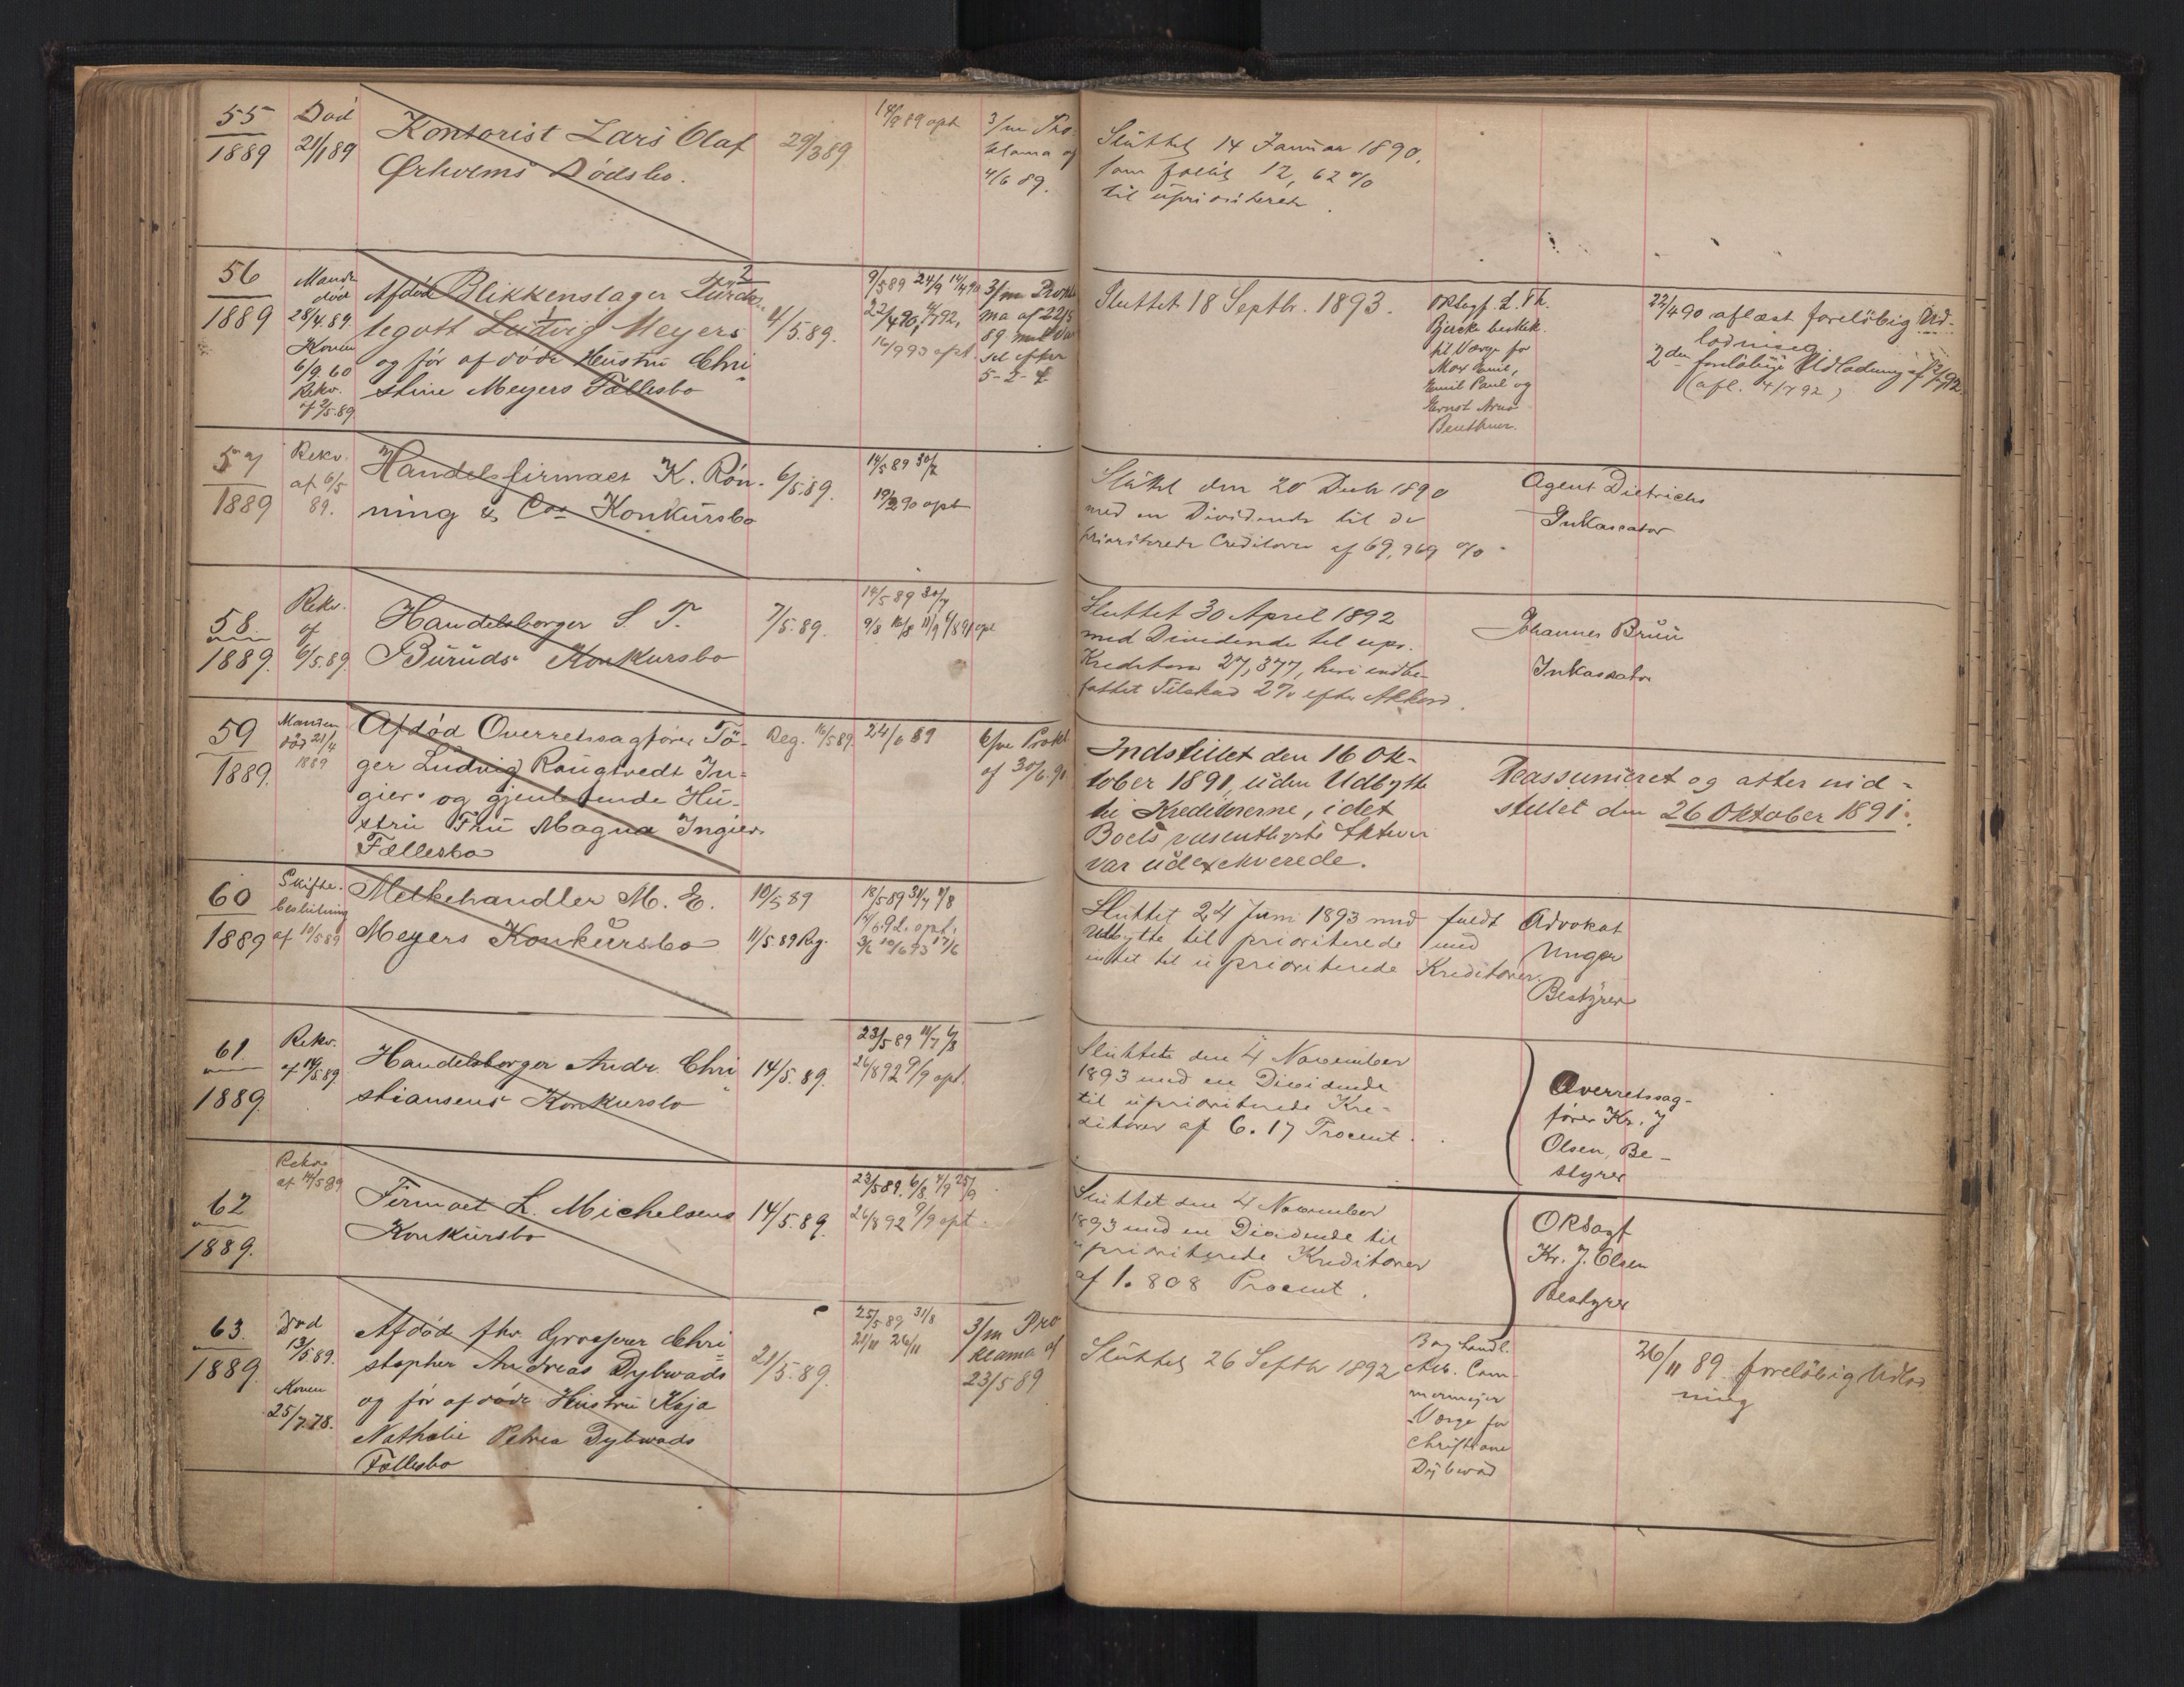 55
1889
Død
21/1 89
Kontorist Lars Olaf
Ørholms Dødsbo.
29/3 89
14/9 89 opt
3/m Pro-
klama af
4/6 89.
Sluttet 14 Januar 1890,
12,62 %
til uprioriterede
56
1889
Mand
død
28/4.89.
Konen
6/9.60
Rekv.
af 2/5.89
Afdøde Blikkenslager Fürch-
tegott Ludvig Meyers
og før afdøde Hustru Chri-
stine Meyers Fællesbo
4/5.89.
9/5 89 24/9 14/4 90
22/4 90, 4/7 92,
16/9 93 opt.
3/m Prokla
ma af 22/5
89
sel efter
5-2-4
Sluttet 18 Septbr. 1893.
ORsagf. L. Th.
Bjercke beskik.
til Værge for
Max Emil,
Emil Paul og
Ernst Arno
Benthner.
22/4 90 aflæst foreløbig Ud-
lodning.
2den foreløbige Udlodning af 2/7 92.
(afl. 4/7 92)
57
1889
Rekv.
af 6/5
89.
Handelsfirmaet K. Røn-
ning & Cos Konkursbo
6/5.89.
14/5 89 30/7
19/12 90 opt
Sluttet den 20 Decbr 1890
med en Dividende til de
prioriterede Creditorer af 69,969 %
Agent Dietrichs
Inkassator
58.
1889.
Rekv.
af
6/5.89.
Handelsborger S. T.
Buruds Konkursbo
7/5.89.
14/5 89 30/7
9/8 16/8 11/9 6/8 91 opt
Sluttet 30 April 1892
med Dividende til upr.
Kreditorer 27,377, heri indbe-
fattet Tilskud 2% efter Akkord.
Johannes Bruu
Inkassator
59
1889.
Manden
død 21/4
1889
Afdød Overretssagfører Tö-
ger Ludvig Rougtvedt In-
giers og gjenlevende Hu-
stru Fru Magna Ingiers
Fællesbo
Reg. 16/5 89.
24/6 89
6/m Prokl.
af 30/6.90
Indstillet den 16 Ok-
tober 1891, uden Udbytte
til Kreditorerne, idet
Boets væsentligste Aktiver
var udexekverede.
Reassumeret og atter ind-
stillet den 26 Oktober 1891.
60
1889
Skifte-
beslutning
af 10/5 89
Melkehandler M. E.
Meyers Konkursbo
10/5 89
11/5 89 Reg.
18/5 89 31/7 9/8
14/6 92. opt.
3/6 10/6 93 17/6
Sluttet 24 Juni 1893 med fuldt
Udbytte til prioriterede med
intet til uprioriterede Kreditorer.
Advokat
Unger
Bestyrer
61.
1889.
Rekv.
af 14/5.89
Handelsborger Andr. Chri-
stiansens Konkursbo
14/5.89.
23/5 89 11/7 6/8
26/8 92 9/9 opt.
Sluttet den 4 November
1893 med en Dividende
til uprioriterede Kre-
ditorer af 6.17 Procent.
Overretssag-
fører Kr. J
Olsen, Be-
styrer
62
1889.
Rekv.
af 14/5 89
Firmaet L. Michelsens
Konkursbo
14/5.89.
23/5 89. 6/8 4/9 25/9
26/8 92 9/9 opt.
Sluttet den 4 November
1893 med en Dividende til
uprioriterede Kreditorer
af 1.808 Procent.
ORSagf
Kr. J. Olsen
Bestyrer
63.
1889.
Død
13/5.89.
Konen
25/7.78.
Afdød fhv. Grosserer Chri-
stopher Andreas Dybwads
og før afdøde Hustru Kaja
Nathalie Petrea Dybwads
Fællesbo
21/5.89.
25/5 89 31/8
21/11 26/11
3/m Pro
klama af
23/5 89
Sluttet 26 Septbr 1892
Boghandl.
Alb. Cam-
mermeyer
Værge for
Christiane
Dybwad
26/11 89 foreløbig Udlod-
ning